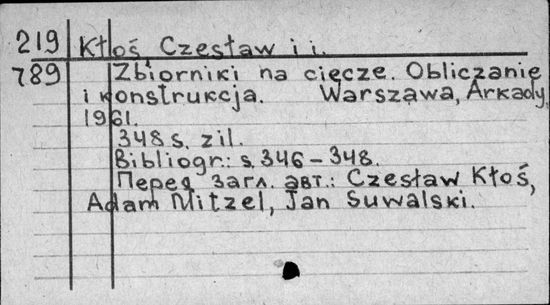 219 Kłoś Czesław i i.
789 Zbiorniki na ciecze. Obliczanie
i konstrukcja. Warszawa, Arkady,
1961.
348 s. zil.
Bibliogr.: s. 346-348.
Перед загл. авт.: Czesław Kłoś,
Adam Mitzel, Jan Suwalski.